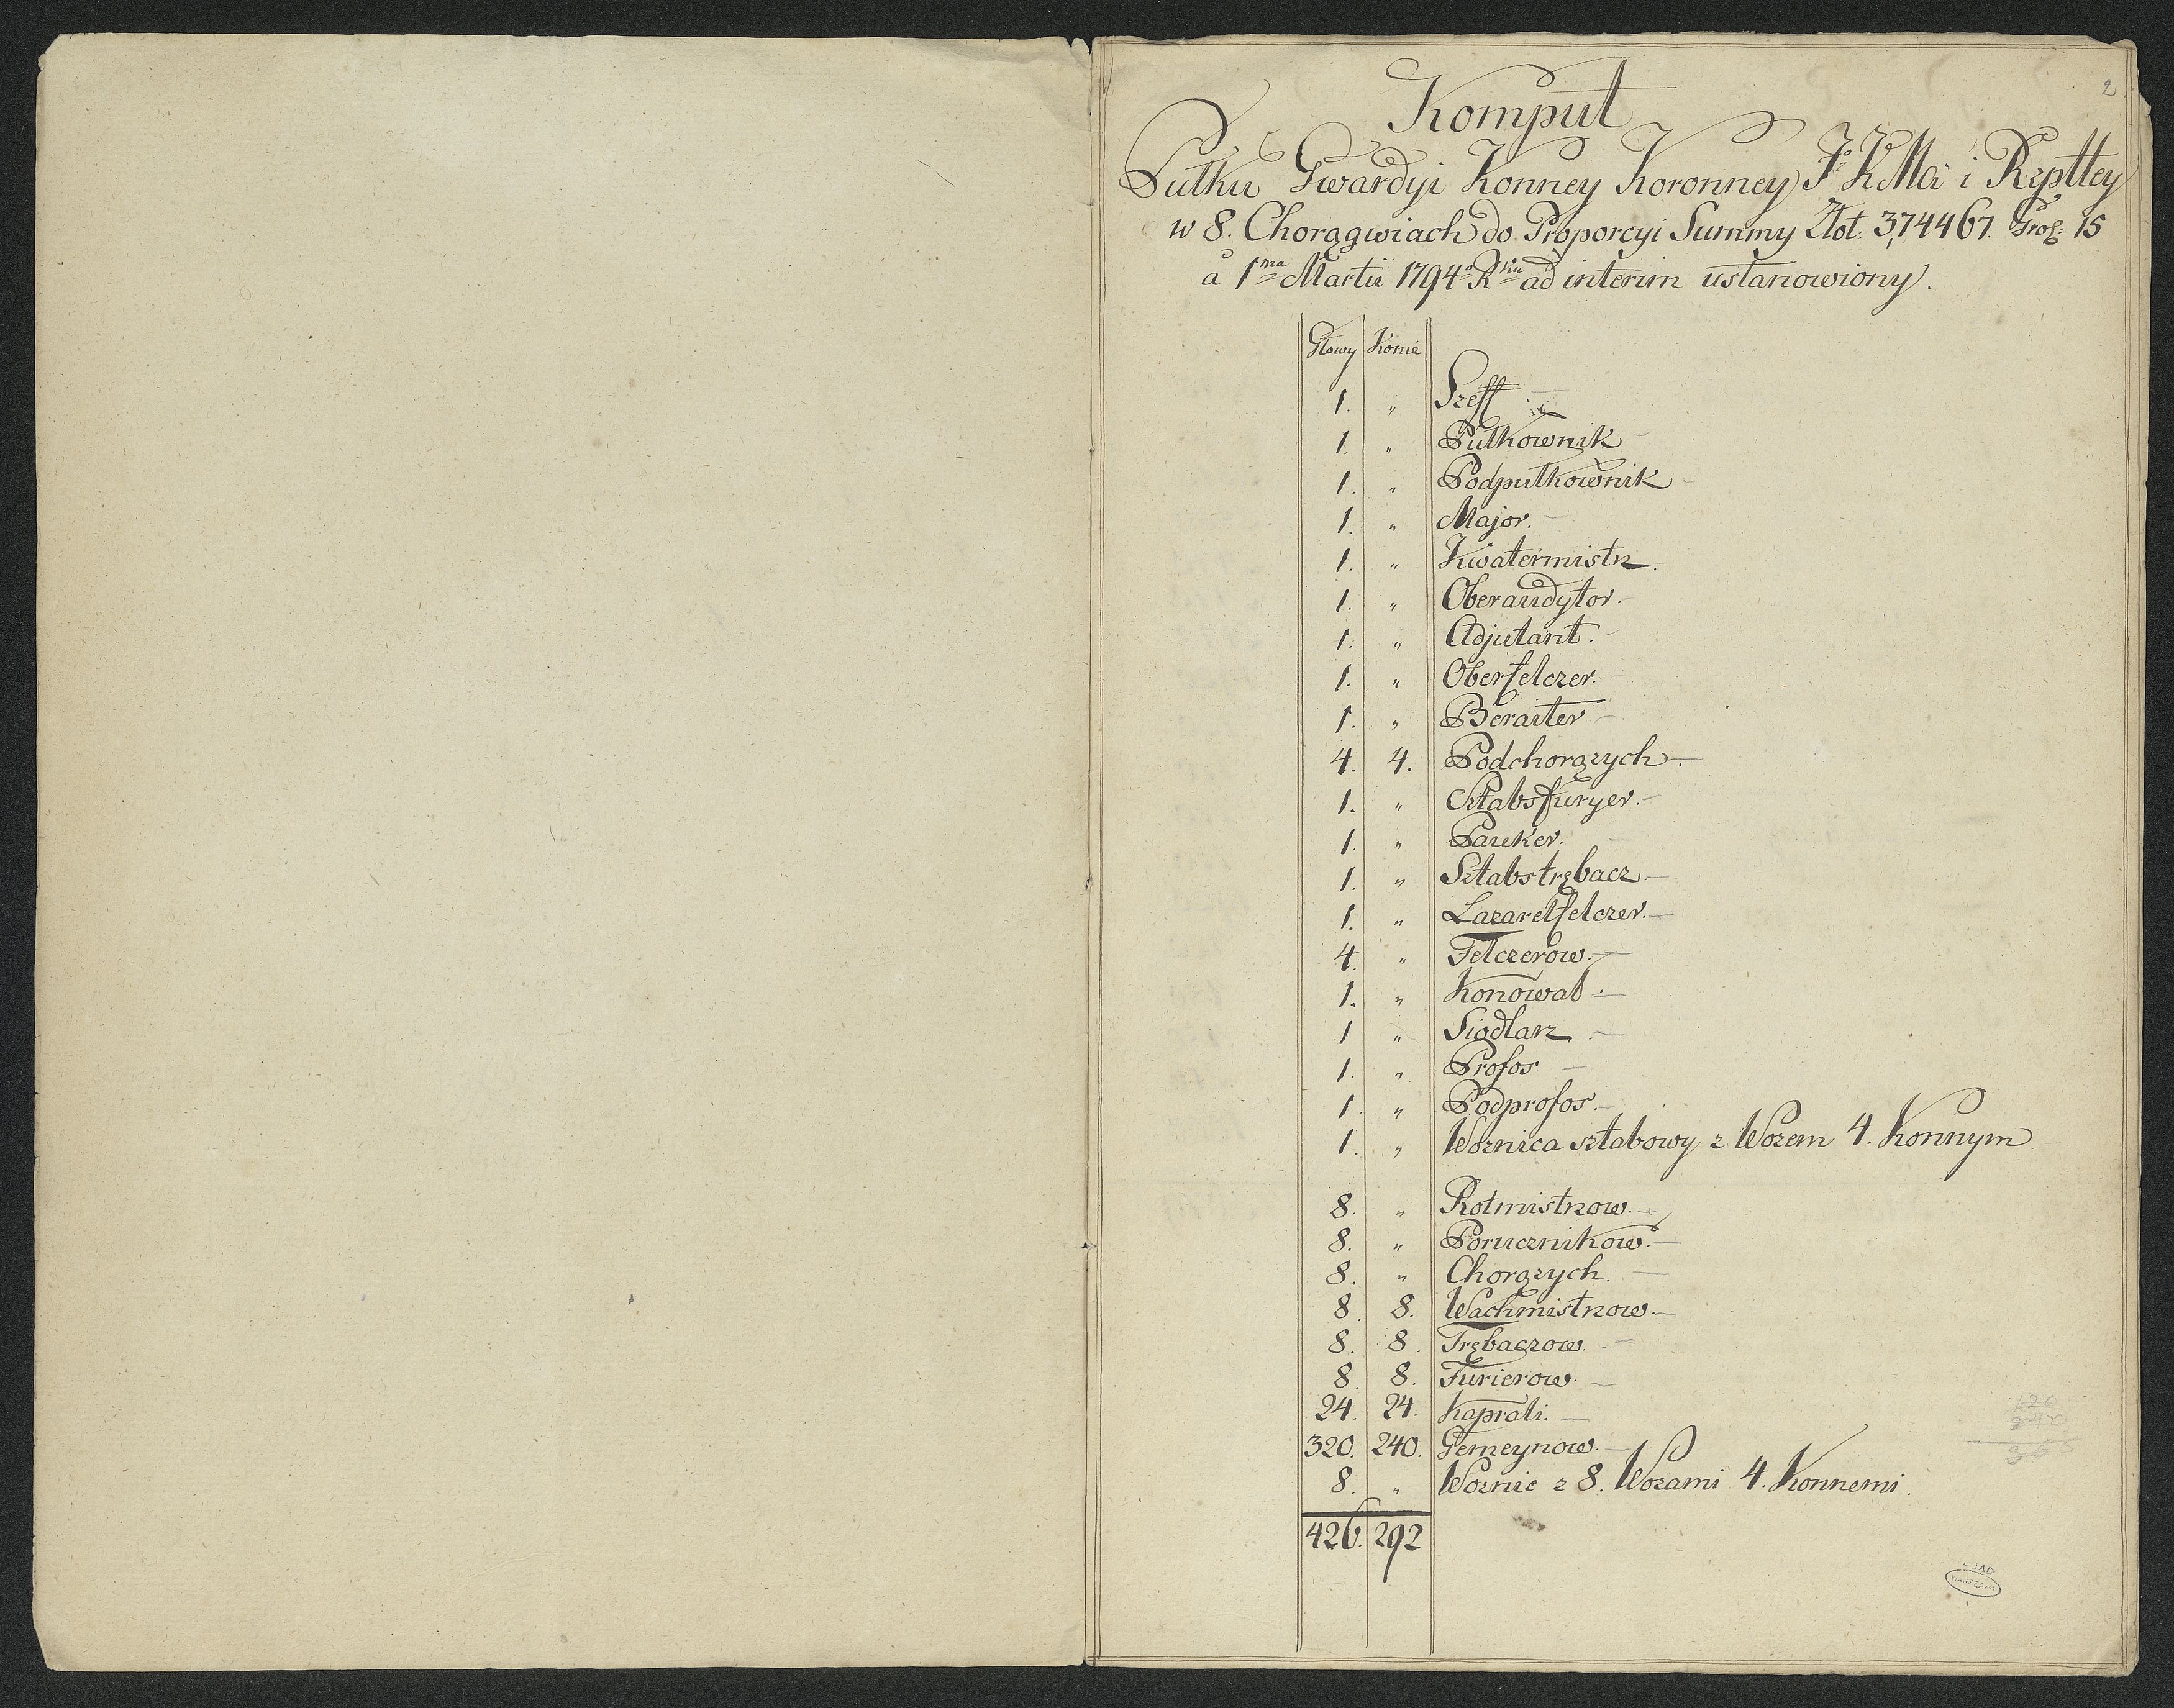 2
Komput
Pułku Gwardyi Konney Koronney JKMci i Rzpttey
w 8. Chorągwiach do Proporcyi Summy Złot: 374467. Grosz: 15
a 1ma Martii 1794o Rku ad interim ustanowiony.
Głowy Konie
1. " Szeff
1. " Pułkownik
1. " Podpułkownik
1. " Major.
1. " Kwatermistrz.
1. " Oberaudytor.
1. " Adjutant.
1. " Oberfelczer.
1. " Beraiter
4. 4. Podchorązych
1. " Sztabsfuryer.
1. " Pauker.
1. " Sztabstrębacz.
1. " Lazaretfelczer.
4. " Felczerow.
1. " Konował.
1 " Siodlarz.
1. " Profos
1. " Podprofos.
1. " Woznica sztabowy z Wozem 4. Konnym
8. " Rotmistrzow.
8. " Porucznikow.
8. " Chorązych.
8. 8. Wachmistrzow.
8. 8. Trębaczow.
8. 8. Furierow.
24. 24. Kaprali.
320. 240. Gemeynow.
8. " Woznic z 8. Wozami 4. Konnemi.
426. 292
120
240
360